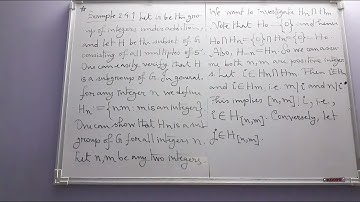 Example 2.4.1 Let G be the gro-
up of integers under addition,
and let H be the subset of G
consisting of all multiples of 5.
One can easily verify that H
is a subgroup of G. In general
for any integer n we define
Hn := {nm : m is an integer}
One can show that Hn is a sub
group of G for all integers n.
Let n, m be any two integers
We want to investigate Hn ∩ Hm
Note that H0 = {0} and hence
H0 ∩ Hm = {0} ∩ Hm = {0} = H0
Also, H-n = Hn. So we can assu
me both n, m are positive integers
Let i ∈ Hm ∩ Hn. Then i ∈ Hm
and i ∈ Hn i.e. m|i and n|i.
This implies [n, m] | i, i.e.,
i ∈ H[n,m]. Conversely, let
j ∈ H[n,m]